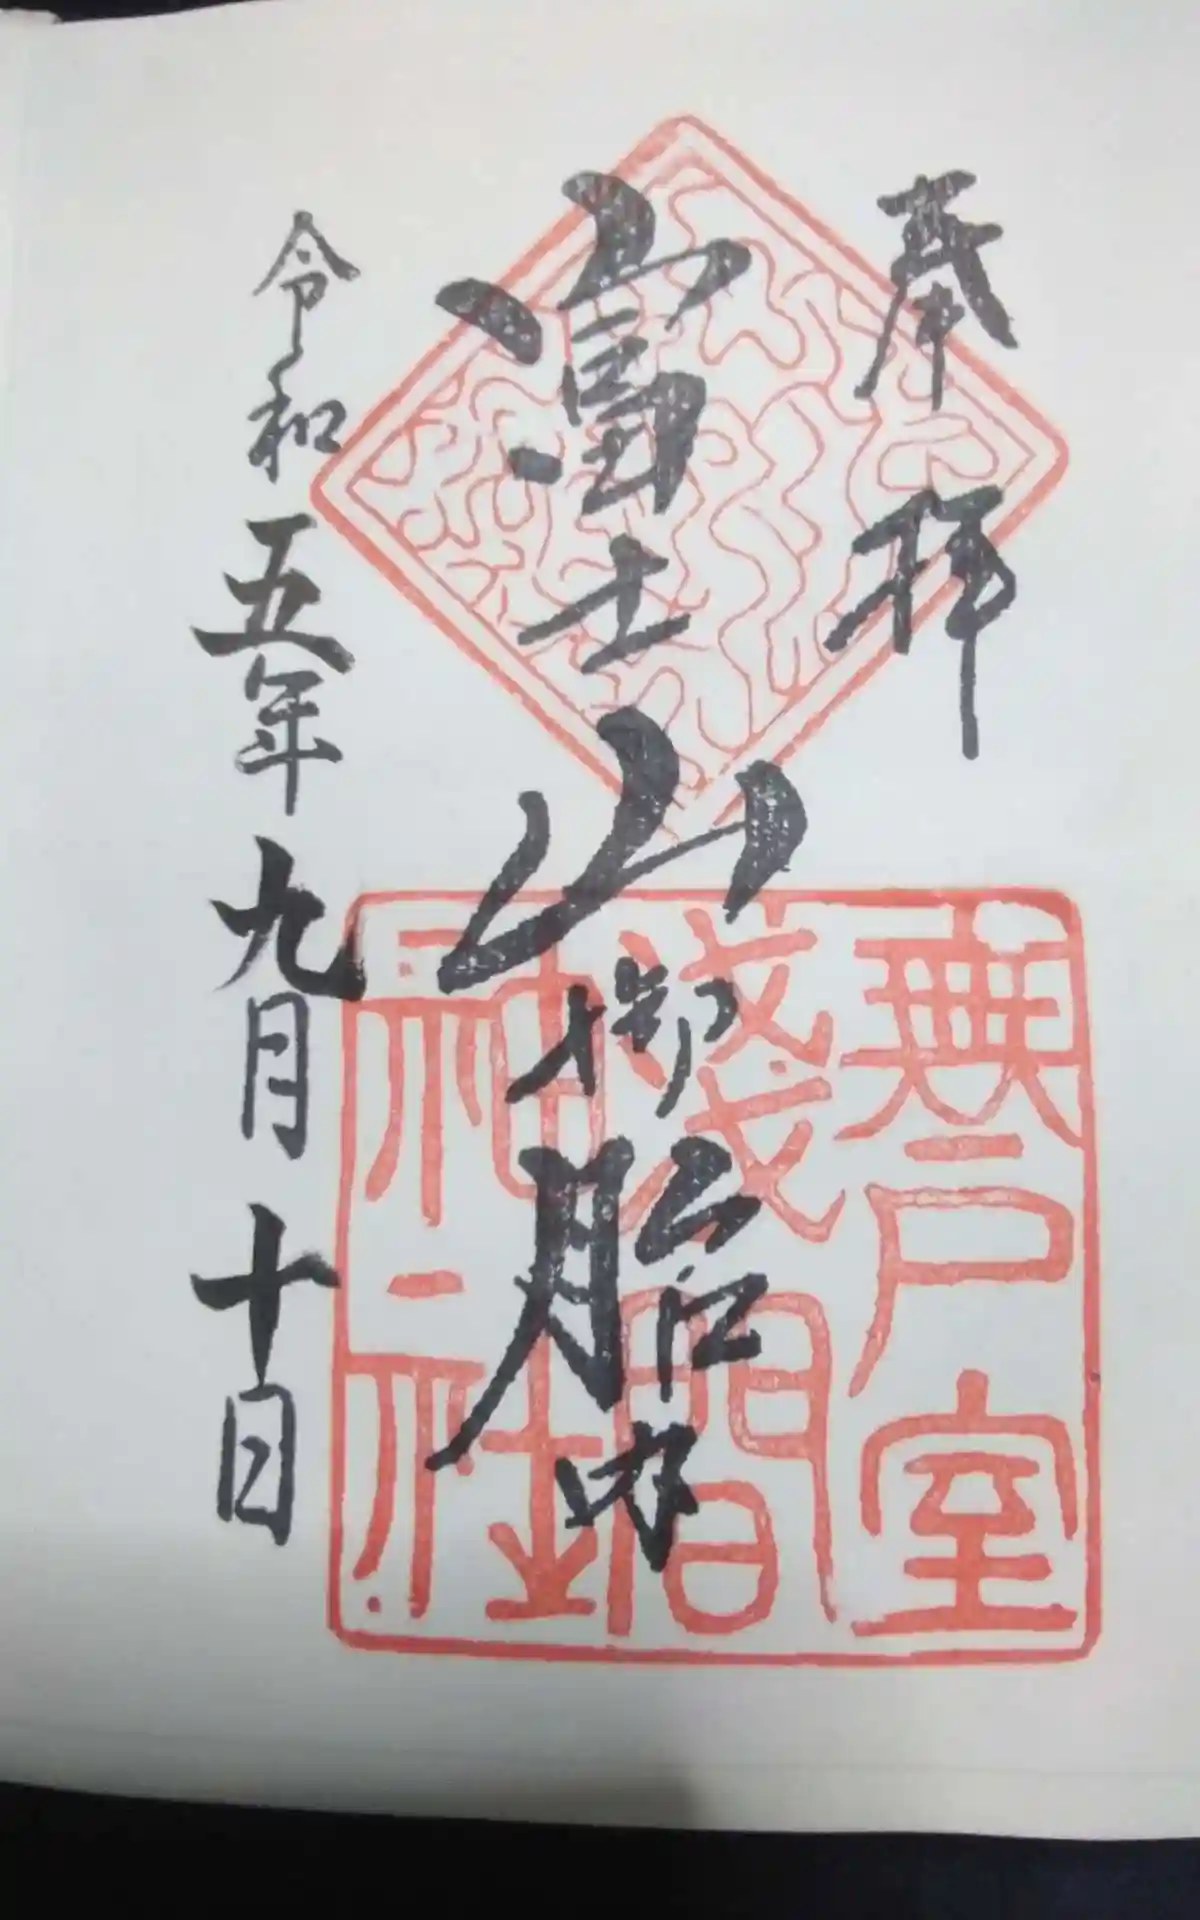 奉拝
富士山御胎内
令和五年九月十日
無戸室
浅間
神社